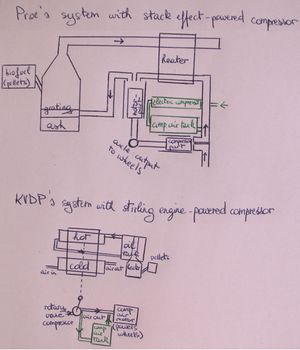 Proe's system with stack effect-powered compressor
biofuel
(pellets)
grating
ash
heater
electric compressor
comp air tank
axle output
to wheels
KVDP's system with stirling engine-powered compressor
hot
cold
air in
air out
oil
tank
pellets
rotary
vane
compressor
air out
comp
air
tank
comp
air
motor
(powers
wheels)